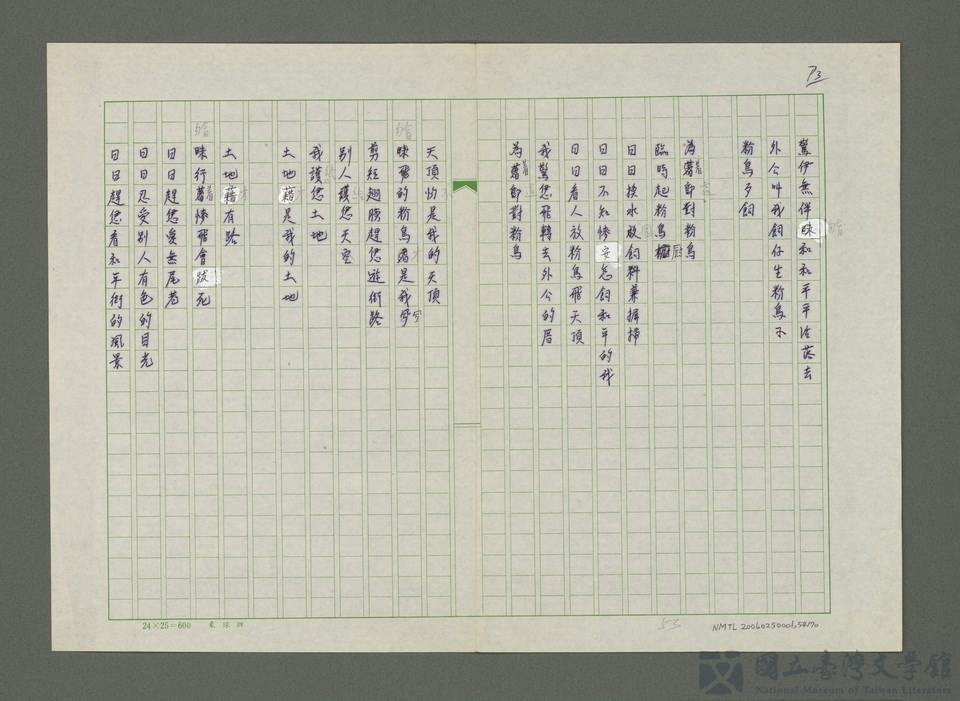 P3
驚伊無伴昧和和平平活落去
外公叫我飼仔生粉鳥不
粉鳥予飼
為著即對粉鳥
臨時起粉鳥櫥
日日換水放飼料兼摒掃
日日不知慘安怎飼和平的我
日日看人放粉鳥飛天頂
我驚您飛轉去外公的厝
為著即對粉鳥
天頂怕是我的天頂
昧飛的粉鳥是我
剪短翅膀趕您遊街路
別人護您天空
我護您土地
土地是我的土地
土地有路
昧行著慘飛會跋死
日日趕您愛無尾巷
日日忍受別人有色的目光
日日趕您看和平街的風景
24×25=600
53
NMTL 20060250006,54170
國立臺灣文學館
National Museum of Taiwan Literature